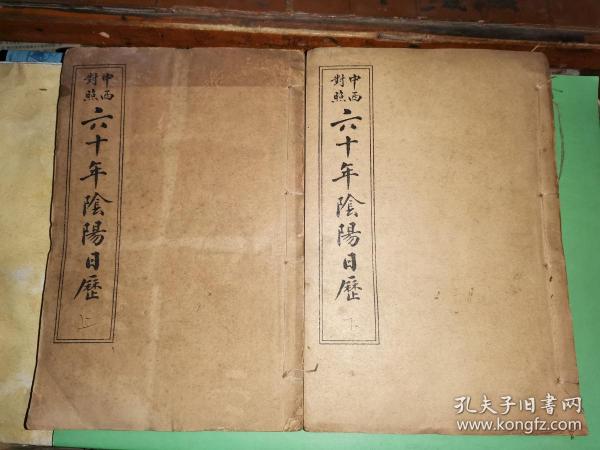 中西
對照
六十年陰陽日歷
上
中西
對照
六十年陰陽日歷
下
孔夫子旧书网
www.kongfz.com